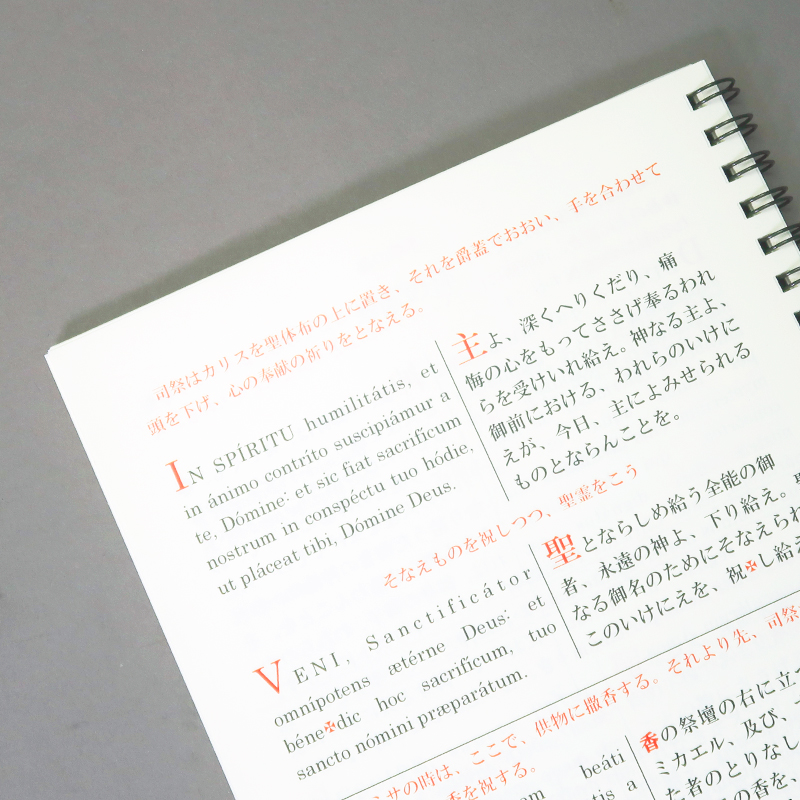 司祭はカリスを聖体布の上に置き、それを爵蓋でおおい、手を合わせて
頭を下げ、心の奉献の祈りをとなえる。
IN SPÍRITU humilitátis, et
in ánimo contríto suscipiámur a
te, Dómine: et sic fiat sacrifícum
nostrum in conspéctu tuo hódie,
ut pláceat tibi, Dómine Deus.
主よ、深くへりくだり、痛
悔の心をもってささげ奉るわれ
らを受けいれ給え。神なる主よ、
御前における、われらのいけに
えが、今日、主によみせられる
ものとならんことを。
そなえものを祝しつつ、聖霊をこう
VENI, Sanctificátor
omnípotens ætérne Deus: et
béne✠dic hoc sacrifícum, tuo
sancto nómini præparátum.
聖とならしめ給う全能の御
者、永遠の神よ、下り給え。聖
なる御名のためにそなえられ
このいけにえを、祝✠し給え
サの時は、ここで、供物に撒香する。それより先、司祭
香を祝する。
beáti
tis a
香の祭壇の右に立つ
ミカエル、及び、
た者のとりなし
の香を、